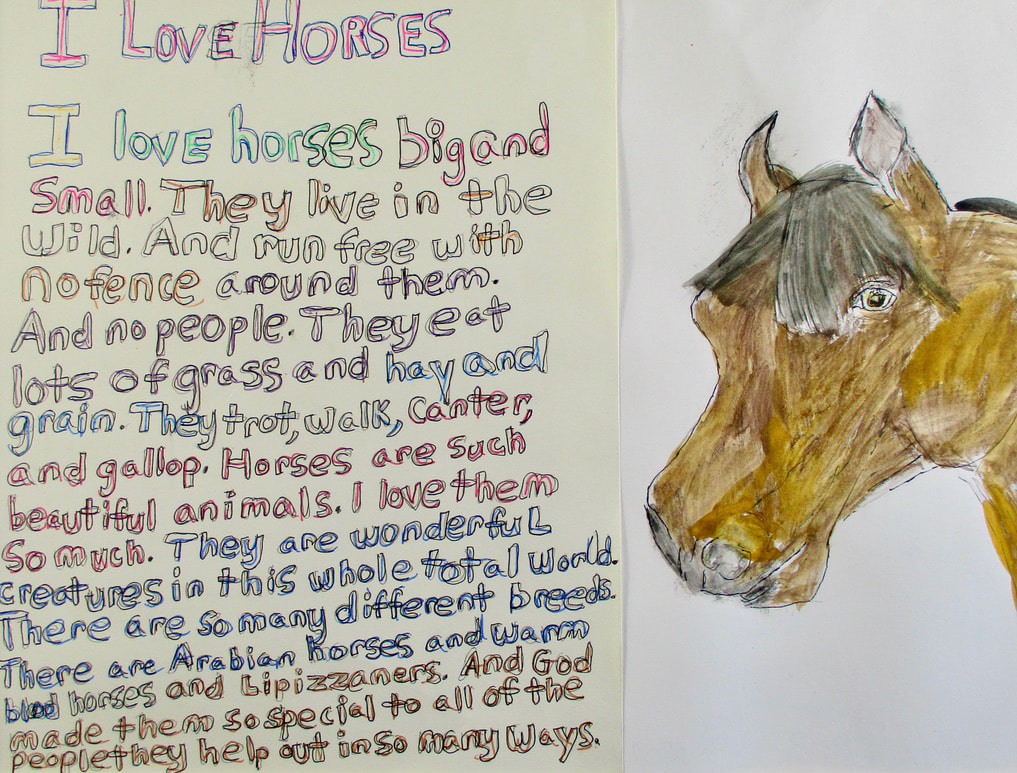 I LOVE HORSES
I lovE horses big and
Small. They live in the
Wild. And run free with
No fence around them.
And no people. They eat
lots of grass and hay and
grain. They trot, walk, Canter,
and gallop. Horses are such
beautiful animals. I love them
So much. They are wonderful
creatures in this whole total World.
There are so many different breeds.
There are Arabian horses and warm
blood horses and Lipizzaners. And God
made them so special to all of the
people they help out in so many ways.